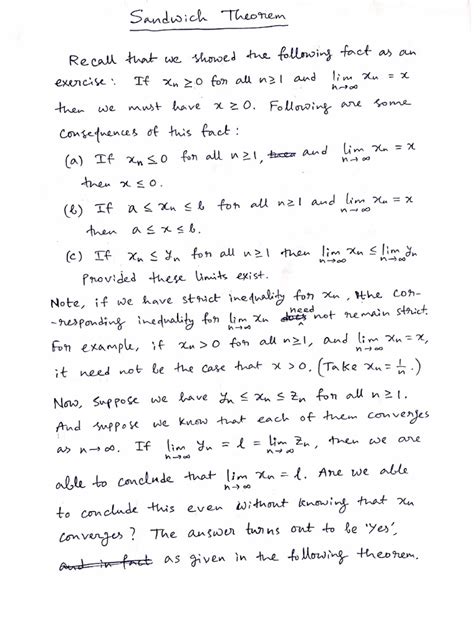 Sandwich Theorem
Recall that we showed the following fact as an
exercise: If xₙ ≥ 0 for all n ≥ 1 and lim_{n→∞} xₙ = x
then we must have x ≥ 0. Following are some
consequences of this fact:
(a) If xₙ ≤ 0 for all n ≥ 1, and lim_{n→∞} xₙ = x
then x ≤ 0.
(b) If a ≤ xₙ ≤ b for all n ≥ 1 and lim_{n→∞} xₙ = x
then a ≤ x ≤ b.
(c) If xₙ ≤ yₙ for all n ≥ 1 then lim_{n→∞} xₙ ≤ lim_{n→∞} yₙ
provided these limits exist.
Note, if we have strict inequality for xₙ, the cor-
-responding inequality for lim_{n→∞} xₙ need not remain strict.
For example, if xₙ > 0 for all n ≥ 1, and lim_{n→∞} xₙ = x,
it need not be the case that x > 0. (Take xₙ = 1/n.)
Now, suppose we have yₙ ≤ xₙ ≤ zₙ for all n ≥ 1.
And suppose we know that each of them converges
as n→∞. If lim_{n→∞} yₙ = l = lim_{n→∞} zₙ, then we are
able to conclude that lim_{n→∞} xₙ = l. Are we able
to conclude this even without knowing that xₙ
converges? The answer turns out to be 'yes',
and in fact as given in the following theorem.